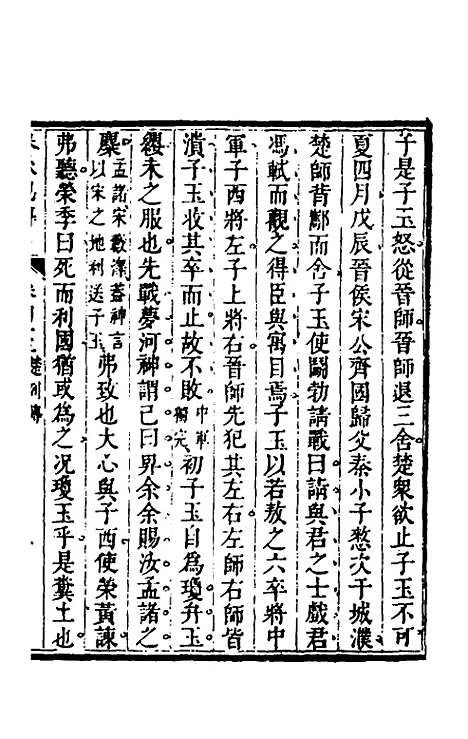 于是子玉怒從晉師晉師退三舍楚衆欲止子玉不可
夏四月戊辰晉侯宋公齊國歸父秦小子憖次于城濮
楚師背酅而舍子玉使鬬勃請戰曰請與君之士戲君
馮軾而觀之得臣與寓目焉子玉以若敖之六卒將中
軍子西將左子上將右晉師先犯其左右左師右師皆
潰子玉收其卒而止故不敗中軍獨完初子玉自爲瓊弁玉
纓未之服也先戰夢河神謂己曰畀余余賜汝孟諸之
麋孟諸宋藪澤蓋神言以宋之地利送子玉弗致也大心與子西使榮黃諫
弗聽榮季曰死而利國猶或爲之况瓊玉乎是糞土也
楚列傳